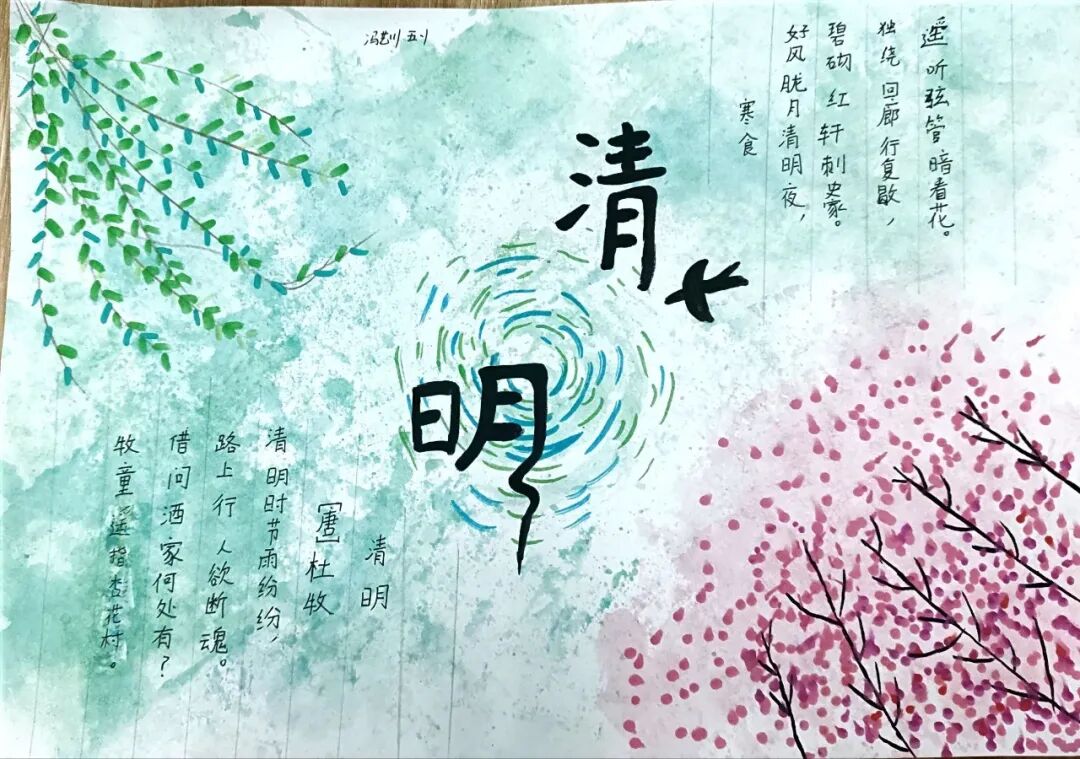 清
明
寒食
好风胧月清明夜，
碧砌红轩刺史家。
独绕回廊行复歇，
遥听弦管暗看花。
清明
[唐]杜牧
清明时节雨纷纷，
路上行人欲断魂。
借问酒家何处有？
牧童遥指杏花村。